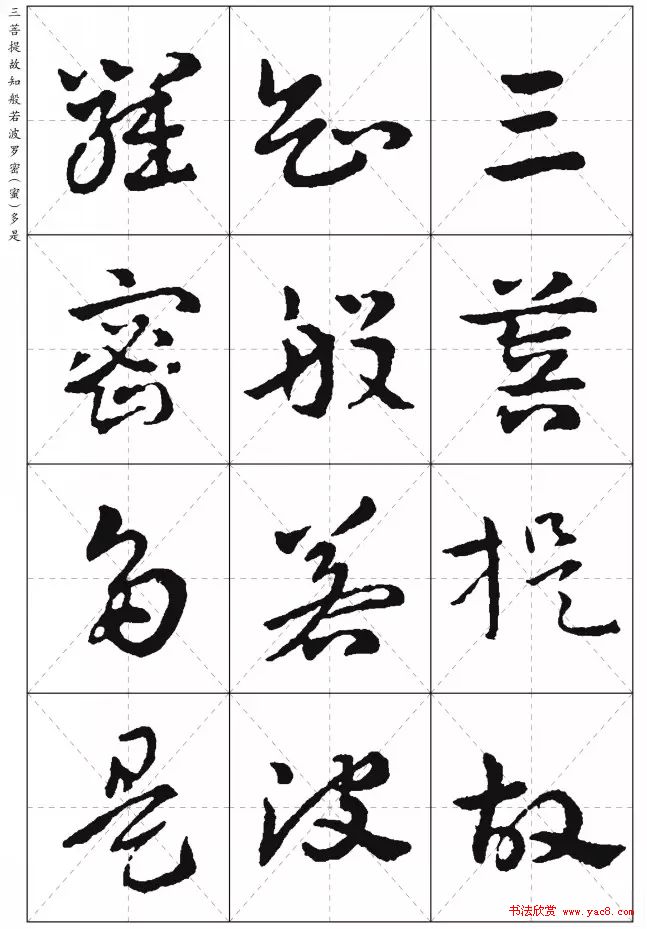 三菩提故
知般若波
羅密多是
三菩提故知般若波罗密（蜜）多是
书法欣赏 www.yac8.com